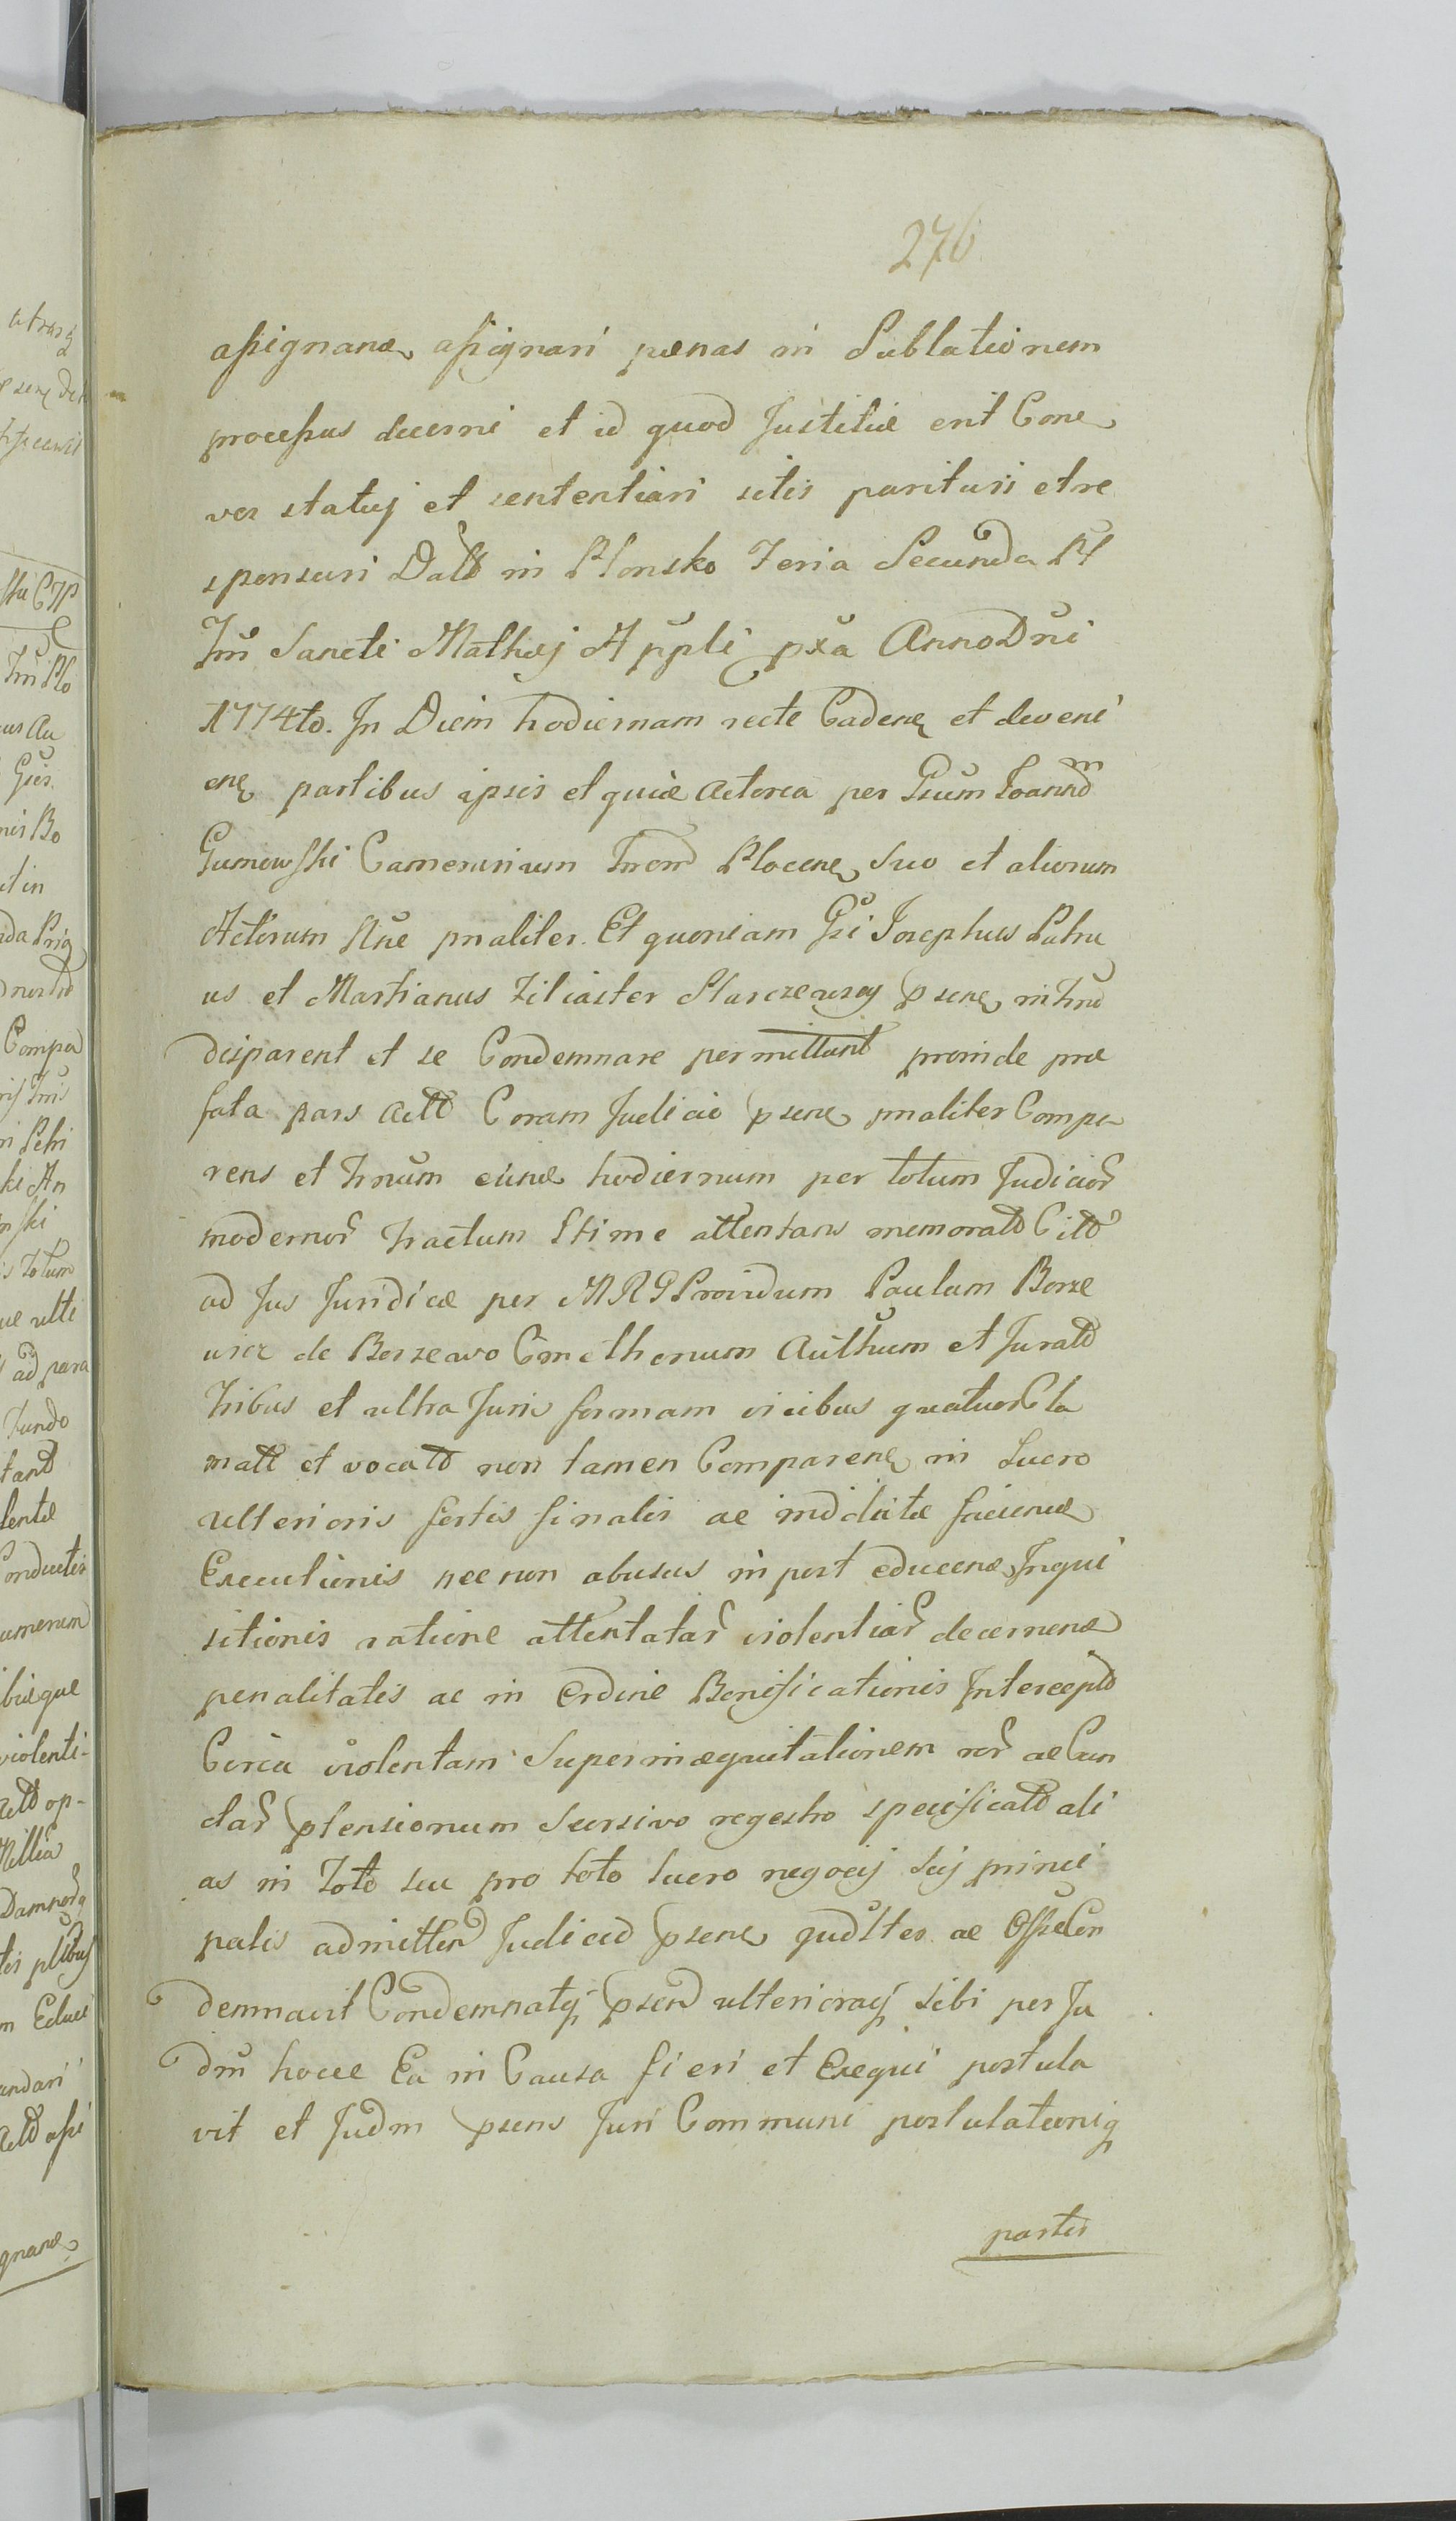 276
assignanæ assignari pænas in Sublationem
processus decerni et id quod Justitiæ erit Conc
vos statuj et sententiari sitis parituri et re
sponsuri Datt in Plonsko Feria Secunda
Sancti Mathiæj pxa Anno Dni
1774to. In Diem hodiernam recte Caden et deveni
en partibus ipsis et quidē Actorea per Gsum Joannem
Gumowski Camerarium Plocen Suo et aliorum
Actorum Nne pnaliter. Et quoniam Gsi Josephus Patru
us et Martianus filiaster psen in Trno
disparent et se Condemnare permittunt proinde præ
fata pars Actt Coram Judicio psen pnaliter Compa
rens et Trnum hodiernum per totum Judicior
modernor tractum Stime attentans memoratt Citt
ad Jus Juridicæ per MRG Providum Paulum Borze
de Borzewo Cmethonum et Juratt
tribus et ultra Juris formam vicibus quatuor Cla
matt et vocatt non tamen Comparen in Lucro
ulterioris fortis finalis ac facienæ
Executionis nec non abusus in post educenæ Inqui
sitionis ratione attentatar violentiar decernenæ
penalitatis ac in Ordine Bonificationis Intercept
Circa violentam Superinæquitationem rer ac Cun
ctar ptensionum Seorsivo regestro specificatt ali
as in Toto seu pro toto lucro negocij sui princi
palis admitten Judicio psen ac Offse Con
demnavit Condemnatq psen ulterioraq sibi per Ju
dm hocce Ea in Causa fieri et Exequi postula
vit et Judm psens Juri Communi postulationiq
partis